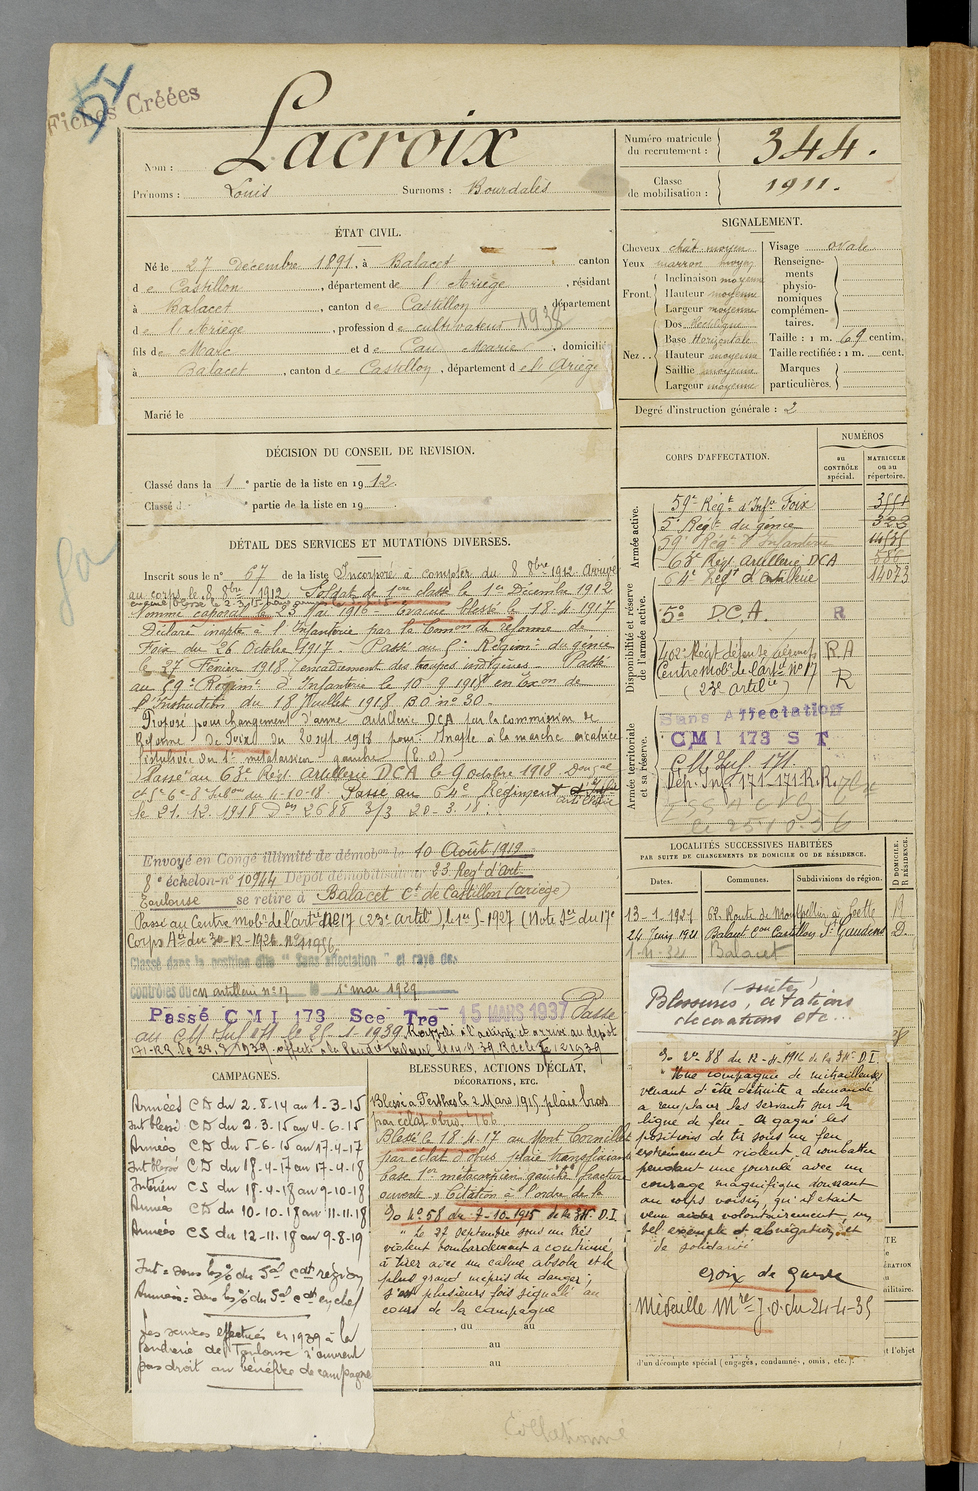 Fiches Créées
54
Nom : Lacroix
Prénoms : Louis Surnoms : Bourdalès
Numéro matricule du recrutement : 344.
Classe de mobilisation : 1911.
ÉTAT CIVIL.
Né le 27 Décembre 1891, à Balacet, canton
de Castillon, département de l'Ariège, résidant
à Balacet, canton de Castillon, département
de l'Ariège, profession de cultivateur 1938
fils de Marc et de Cau Marie, domicilié
à Balacet, canton de Castillon, département de l'Ariège
Marié le
SIGNALEMENT.
Cheveux chât moyen
Yeux marron moyen
Front. Inclinaison moyenne
Hauteur moyenne
Largeur moyenne
Nez . . Dos Rectiligne
Base Horizontale
Hauteur moyenne
Saillie moyenne
Largeur moyenne
Visage ovale
Renseignements physionomiques complémentaires.
Taille : 1 m. 69 centim.
Taille rectifiée : 1 m. cent.
Marques particulières.
Degré d'instruction générale : 2
DÉCISION DU CONSEIL DE REVISION.
Classé dans la 1e partie de la liste en 1912.
Classé d e partie de la liste en 19
DÉTAIL DES SERVICES ET MUTATIONS DIVERSES.
Inscrit sous le n° 67 de la liste Incorporé à compter du 8 8bre 1912 Arrivé
au corps le 8 8bre 1912 Soldat de 1ere classe le 1er Décembre 1912
Nommé caporal le 23 Mai 1916 - Evacué blessé le 18-4 1917
Déclaré inapte à l'Infanterie par la Comon de réforme de
Foix du 26 Octobre 1917. Passé au 5e Régimt du génie
le 27 Février 1918 (encadrement des troupes indigènes. Passé
au 59e Régimt d'Infanterie le 10 9 1918 en Exon de
l'Instruction du 18 Juillet 1918 B.O n° 30.
Proposé pour changement d'arme artillerie DCA par la commission de
Réforme de Foix du 20 sept 1918 pour Inapte à la marche cicatrice
Passé au 63e Régt Artillerie DCA le 9 octobre 1918
Passé au 64e Régiment
le 21.12.1918 Don 2688 3/3 20-3.18.
Envoyé en Congé illimité de démobon le 10 Août 1919
8e échelon n° 10944 Dépôt démobilisateur 23 Régt d'Art.
Toulouse se retire à Balacet Ct de Castillon (Ariège)
Passé au Centre Mobon de l'artie N°17 (23e Artie), le 1er-5-1927 (Note du 17e
Corps Aée du 30-12-1926 n° 11956
Classé dans la position dite "Sans affectation" et rayé des
contrôles du CM artillerie n° 17 le 1er mai 1929
Passé CMI 173 Sce Tre 15 MARS 1937 Passé
CORPS D'AFFECTATION.
NUMÉROS
au CONTRÔLE spécial.
MATRICULE ou au répertoire.
Armée active.
59e Régt d'Infie Foix
5e Régt du génie 323
59e Régt d'Infanterie
63e Régt Artillerie DCA
64e Régt d'Artillerie 14073
Disponibilité et réserve de l'armée active.
5e D.C.A. R
R.A
Centre Mobon de l'Artie N°17 R
(23e Artillie)
Armée territoriale et sa réserve.
Sans Affectation
CMI 173 S T
C.M. Inf. 171.
Dép. Inf. 171-171.R.R.
le 25 10.36
LOCALITÉS SUCCESSIVES HABITÉES
PAR SUITE DE CHANGEMENTS DE DOMICILE OU DE RÉSIDENCE.
Dates. Communes. Subdivisions de région. D DOMICILE. R RÉSIDENCE.
13-1-1921 62. Route de Montpellier à Cette R
24 Juin 1921 Balacet Con Castillon St Gaudens D.
Balacet
CAMPAGNES.
Armées CD du 2-8-14 au 1-3-15
Int blessé CD du 2-3-15 au 4-6-15
Armées CD du 5-6-15 au 17-4-17
Int blessé CD du 18-4-17 au 17-4-18
Intérieur CS du 18-4-18 au 9-10-18
Armées CD du 10-10-18 au 11-11-18
Armées CS du 12-11-18 au 9-8-19
Les services effectués en 1939 à la
Poudrerie de Toulouse n'ouvrent
pas droit au bénéfice de campagne
BLESSURES, ACTIONS D'ÉCLAT,
DÉCORATIONS, ETC.
Blessé à Perthes le 2 Mars 1915, plaie bras
par éclat obus.
Blessé le 18.4.17 au Mont Cornillet
par éclat d'obus plaie transfixiante
base 1er métacarpien gauche fracture
ouverte. Citation à l'ordre de la
Do n° 58 du 7-10-1915 de la 34e D.I.
"Le 27 septembre sous un très
violent bombardement a continué
à tirer avec un calme absolu et le
plus grand mépris du danger;
s'est plusieurs fois signalé au
cours de la campagne
, du au
au
au
(suite)
Blessures, citations
décorations etc...
Do n° 88 du 12-4-1916 de la 34e D.I.
"Une compagnie de mitrailleuses
venant d'être détruite a demandé
a remplacer les servants sur la
ligne de feu - A gagné les
positions de tir sous un feu
extrêmement violent. A combattu
pendant une journée avec un
courage magnifique donnant
au corps voisin qu'il était
venu aider volontairement un
bel exemple d'abnégation et
de solidarité
Croix de guerre
Médaille Mre J.O. du 24-4-35
d'un décompte spécial (engagés, condamnés, omis, etc.).
Collationné